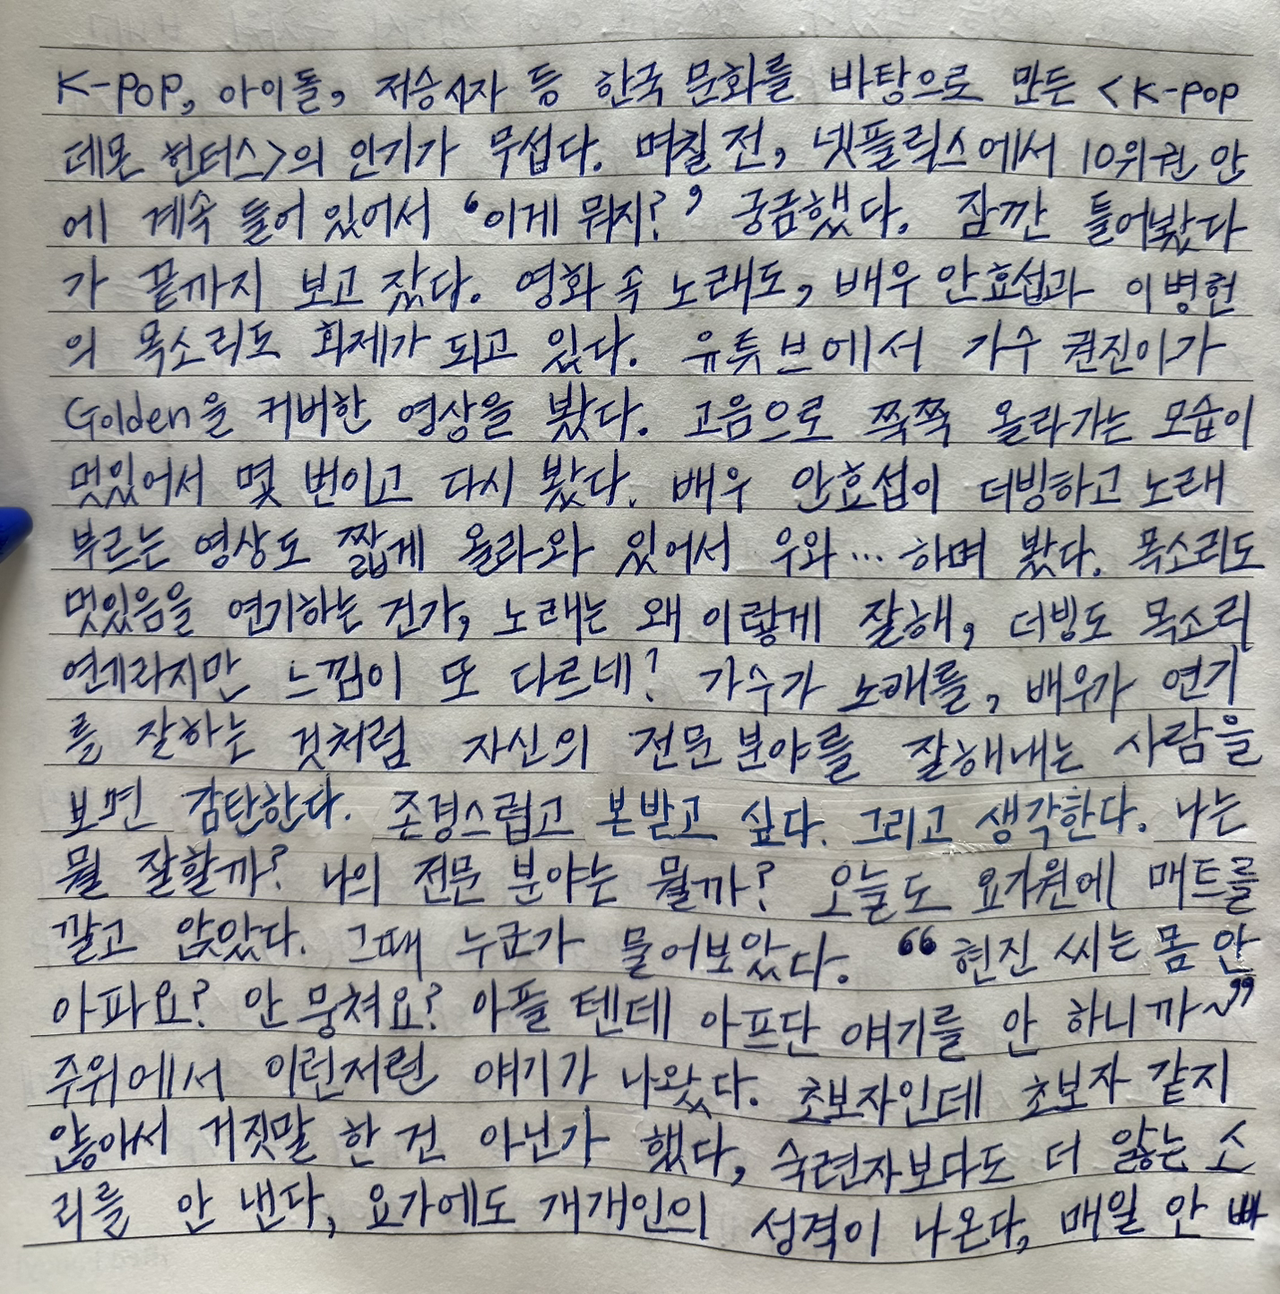 K-POP, 아이돌, 저승사자 등 한국 문화를 바탕으로 만든 <K-pop
데몬 헌터스>의 인기가 무섭다. 며칠 전, 넷플릭스에서 10위권 안
에 계속 들어 있어서 '이게 뭐지?' 궁금했다. 잠깐 틀어봤다
가 끝까지 보고 잤다. 영화 속 노래도, 배우 안효섭과 이병헌
의 목소리도 화제가 되고 있다. 유튜브에서 가수 권진아가
Golden을 커버한 영상을 봤다. 고음으로 쭉쭉 올라가는 모습이
멋있어서 몇 번이고 다시 봤다. 배우 안효섭이 더빙하고 노래
부르는 영상도 짧게 올라와 있어서 우와… 하며 봤다. 목소리도
멋있음을 연기하는 건가, 노래는 왜 이렇게 잘해, 더빙도 목소리
연계라지만 느낌이 또 다르네? 가수가 노래를, 배우가 연기
를 잘하는 것처럼 자신의 전문 분야를 잘해내는 사람을
보면 감탄한다. 존경스럽고 본받고 싶다. 그리고 생각한다. 나는
뭘 잘할까? 나의 전문 분야는 뭘까? 오늘도 요가원에 매트를
깔고 앉았다. 그때 누군가 물어보았다. "현진 씨는 몸 안
아파요? 안 뭉쳐요? 아플 텐데 아프단 얘기를 안 하니까~"
주위에서 이런저런 얘기가 나왔다. 초보자인데 초보자 같지
않아서 거짓말 한 건 아닌가 했다, 숙련자보다도 더 앓는 소
리를 안 낸다, 요가에도 개개인의 성격이 나온다, 매일 안 빠